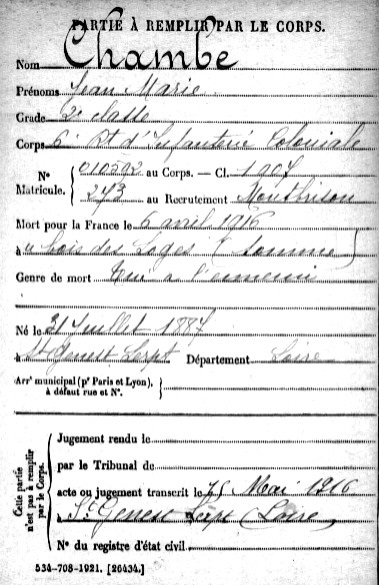 PARTIE À REMPLIR PAR LE CORPS.
Nom Chambe
Prénoms Jean Marie
Grade 2e classe
Corps 6e Rt d'Infanterie Coloniale
N° Matricule. { 010592 au Corps. — Cl. 1907
273 au Recrutement Montbrison
Mort pour la France le 6 avril 1916
à u bois des Loges (Somme)
Genre de mort Tué à l'ennemi
Né le 31 Juillet 1887
à St Genest Lerpt Département Loire
Arrt municipal (pr Paris et Lyon), à défaut rue et N°. }
Cette partie n'est pas à remplir par le Corps.
Jugement rendu le
par le Tribunal de
acte ou jugement transcrit le Mai 1916
St Genest Lerpt (Loire)
N° du registre d'état civil
534-708-1921. [26434.]